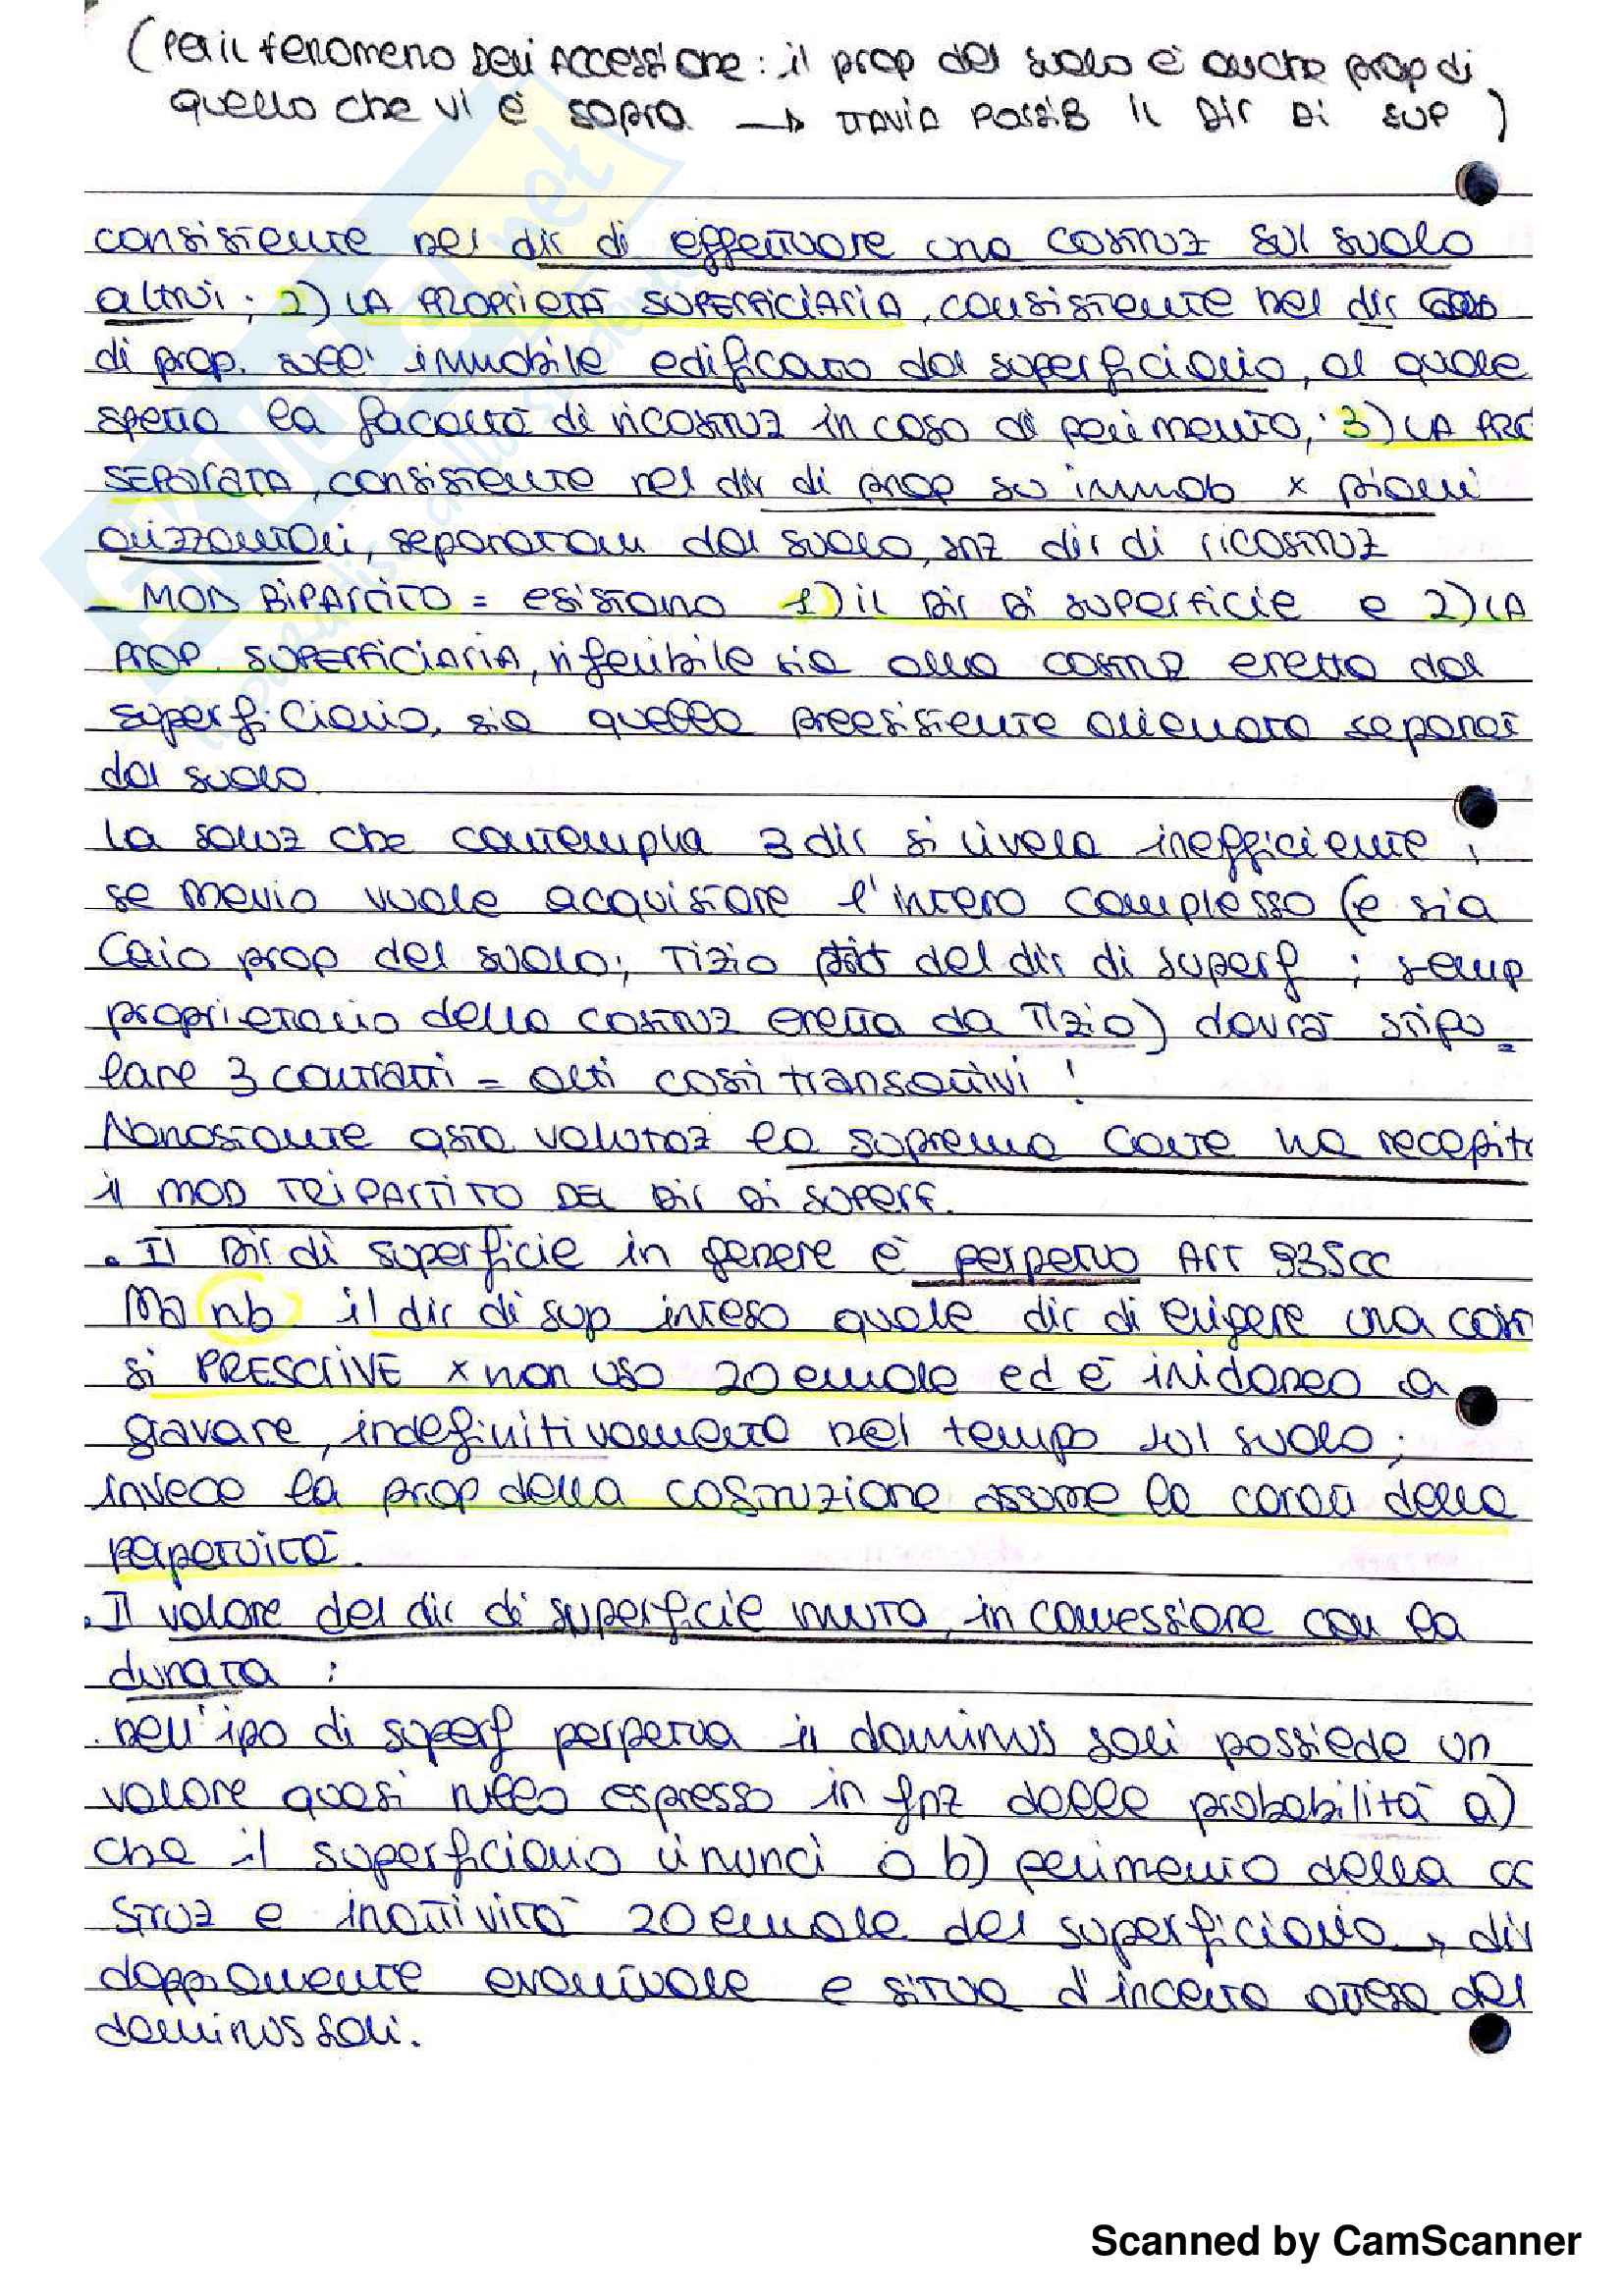 (Per il fenomeno dell'ACCESSIONE: il prop del suolo è anche prop di
quello che vi è sopra → TTAVIA POSSIB IL DIR DI SUP)
consistente nel dir di effettuare una costruz sul suolo
altrui; 2) LA PROPRIETÀ SUPERFICIARIA, consistente nel dir
di prop. sull'immobile edificato dal superficiario, al quale
spetta la facoltà di ricostruz in caso di perimento; 3) LA PRO
SEPARATA, consistente nel dir di prop su immob x piani
orizzontali, separatam dal suolo, snz dir di ricostruz
- MOD BIPARTITO = esistono 1) il DIR DI superficie e 2) LA
PROP. SUPERFICIARIA, riferibile sia alla costruz eretta dal
superficiario, sia quella preesistente alienata separat
dal suolo.
La soluz che contempla 3 dir si rivela inefficiente;
se Mevio vuole acquistare l'intero complesso (e sia
Caio prop del suolo; Tizio tit del dir di superf; semp
proprietario della costruz eretta da Tizio) dovrà stipu=
lare 3 contratti = alti costi transattivi!
Nonostante qsta valutaz la suprema Corte ha recepito
il MOD TRIPARTITO DEL DIR DI SUPERF.
. Il Dir di superficie in genere è perpetuo ART 935cc
Ma nb il dir di sup inteso quale dir di erigere una costr
si PRESCRIVE x non uso 20ennale ed è inidoneo a
gravare, indefinitivamente nel tempo sul suolo;
invece la prop della costruzione assume la caratt della
perpetuità.
. Il valore del dir di superficie muta, in connessione con la
durata:
. nell'ipo di superf perpetua il dominus soli possiede un
valore quasi nullo espresso in fnz delle probabilità a)
che il superficiario rinunci o b) perimento della co
struz e inattività 20ennale del superficiario → dir
doppiamente eventuale e situa d'incerta attesa del
dominus soli.
Scanned by CamScanner